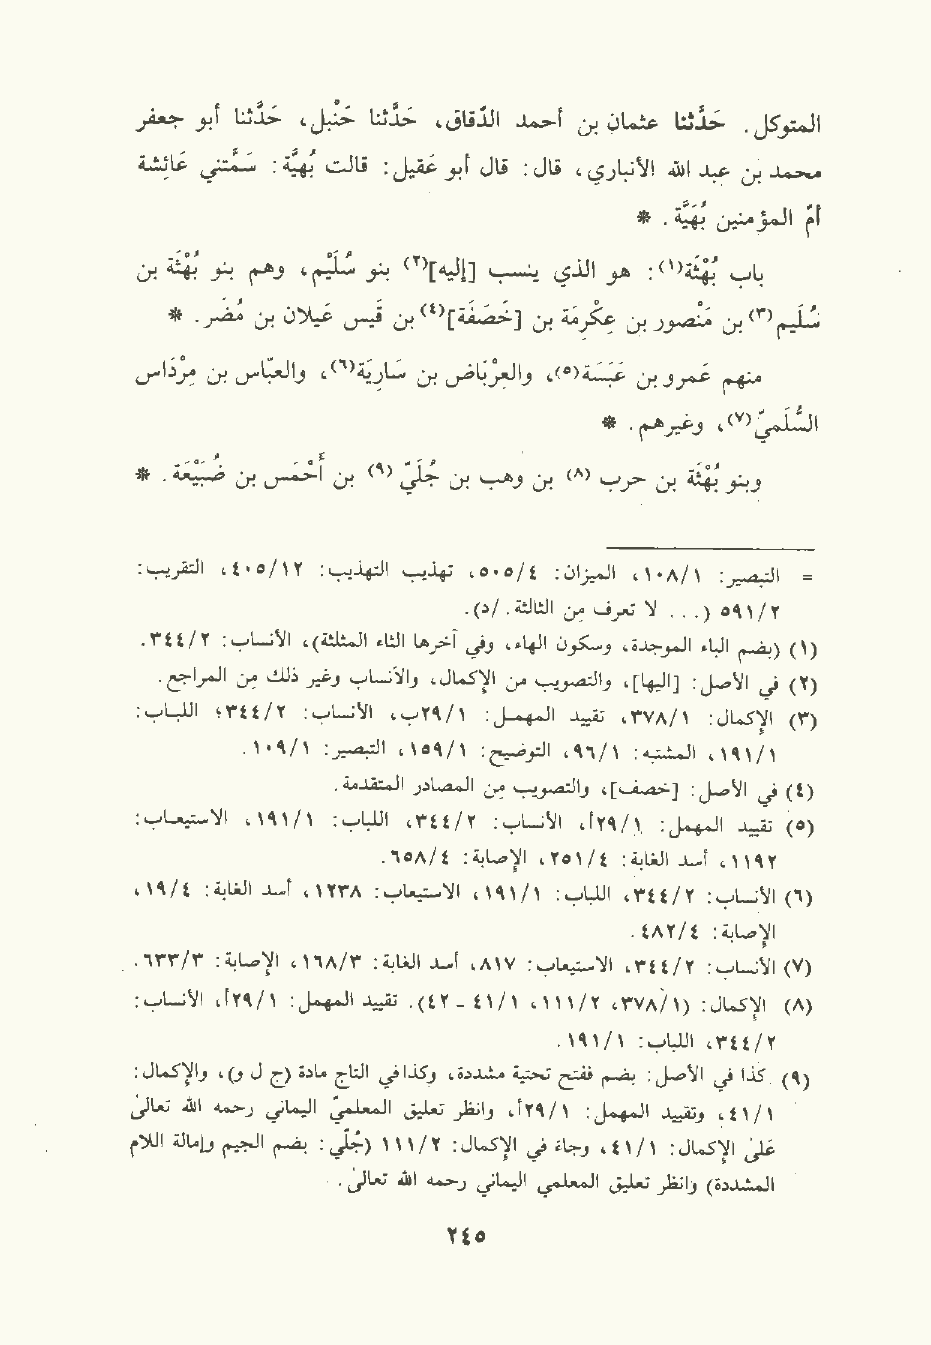 المتوكل. حَدَّثنا عثمان بن أحمد الدَّقاق، حَدَّثنا حَنْبل، حَدَّثنا أبو جعفر
محمد بن عبد الله الأنباري، قال: قال أبو عَقيل: قالت بُهَيَّة: سَمَّتني عَائِشة
أمّ المؤمنين بُهَيَّة. *
باب بُهْثَة(١): هو الذي ينسب [إليه](٢) بنو سُلَيْم، وهم بنو بُهْثَة بن
سُلَيم(٣) بن مَنْصور بن عِكْرِمَة بن [خَصَفَة](٤) بن قَيس عَيْلان بن مُضَر. *
منهم عَمرو بن عَبَسَة(٥)، والعِرْبَاض بن سَارِيَة(٦)، والعبَّاس بن مِرْدَاس
السُّلَميّ(٧)، وغيرهم. *
وبنو بُهْثَة بن حرب (٨) بن وهب بن جُلَيّ (٩) بن أَحْمَس بن ضُبَيْعَة. *
= التبصير: ١٠٨/١، الميزان: ٥٠٥/٤، تهذيب التهذيب: ٤٠٥/١٢، التقريب:
٥٩١/٢ (... لا تعرف مِن الثالثة. /د).
(١) (بضم الباء الموحدة، وسكون الهاء، وفي آخرها الثاء المثلثة)، الأنساب: ٣٤٤/٢.
(٢) في الأصل: [اليها]، والتصويب من الإكمال، والأنساب وغير ذلك مِن المراجع.
(٣) الإكمال: ٣٧٨/١، تقييد المهمل: ٢٩/١ب، الأنساب: ٣٤٤/٢؛ اللباب:
١٩١/١، المشتبه: ٩٦/١، التوضيح: ١٥٩/١، التبصير: ١٠٩/١.
(٤) في الأصل: [خصف]، والتصويب مِن المصادر المتقدمة.
(٥) تقييد المهمل: ٢٩/١أ، الأنساب: ٣٤٤/٢، اللباب: ١٩١/١، الاستيعاب:
١١٩٢، أسد الغابة: ٢٥١/٤، الإصابة: ٦٥٨/٤.
(٦) الأنساب: ٣٤٤/٢، اللباب: ١٩١/١، الاستيعاب: ١٢٣٨، أسد الغابة: ١٩/٤،
الإصابة: ٤٨٢/٤.
(٧) الأنساب: ٣٤٤/٢، الاستيعاب: ٨١٧، أسد الغابة: ١٦٨/٣، الإصابة: ٦٣٣/٣.
(٨) الإكمال: (٣٧٨/١، ١١١/٢، ٤١/١ - ٤٢). تقييد المهمل: ٢٩/١أ، الأنساب:
٣٤٤/٢، اللباب: ١٩١/١.
(٩) كذا في الأصل: بضم ففتح تحتية مشددة، وكذا في التاج مادة (ج ل و)، والإكمال:
٤١/١، وتقييد المهمل: ٢٩/١أ، وانظر تعليق المعلميّ اليماني رحمه الله تعالىٰ
علىٰ الإكمال: ٤١/١، وجاء في الإكمال: ١١١/٢ (جُلِّي: بضم الجيم وإمالة اللام
المشددة) وانظر تعليق المعلمي اليماني رحمه الله تعالىٰ.
٢٤٥